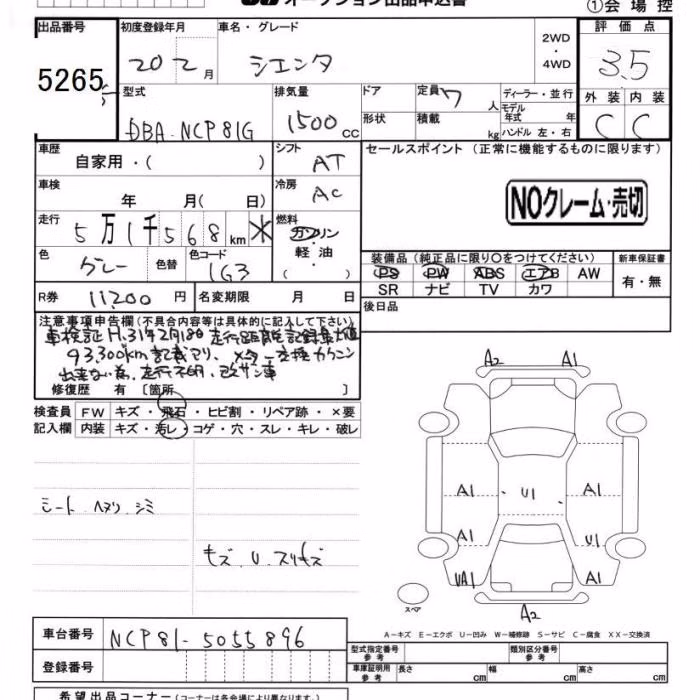 オークション出品申込書
①会場控
出品番号
5265
初度登録年月
20 2月
車名・グレード
シエンタ
2WD
・
4WD
評価点
3.5
型式
DBA-NCP81G
排気量
1500cc
ドア
定員 7人
形状
積載 kg
ディーラー・並行
モデル年式 年
ハンドル 左・右
外装 内装
C C
車歴
自家用・( )
シフト
AT
セールスポイント (正常に機能するものに限ります)
NOクレーム・売切
車検
年 月( 日)
冷房
AC
走行
5万1千568km ※
燃料
ガソリン
・
軽油
( )
色
グレー
色替
色コード
1G3
装備品 (純正品に限り○をつけてください)
新車保証書
PS PW ABS エアB AW
SR ナビ TV カワ
有・無
R券 11200円
名変期限 月 日
後日品
注意事項申告欄 (不具合内容等は具体的に記入して下さい)
車検証H.31年2月18日 走行距離記録最大値
93,300km記載アリ、メーター交換かカクニン
出来ない為、走行不明、改ザン車
修復歴 有 〔箇所 〕
検査員 FW キズ・飛石・ヒビ割・リペア跡・×要
記入欄 内装 キズ・汚レ・コゲ・穴・スレ・キレ・破レ
シート ヘタリ シミ
キズ.U.スリキズ
A2 A1
A1 U1 A1
A1 U1
UA1 A1
A2
スペア
A−キズ E−エクボ U−凹み W−補修跡 S−サビ C−腐食 XX−交換済
車台番号 NCP81-5055896
登録番号
型式指定番号 参考
類別区分番号 参考
車庫証明用 参考 長さ cm 幅 cm 高さ cm
希望出品コーナー (コーナーは各会場により異なります。)